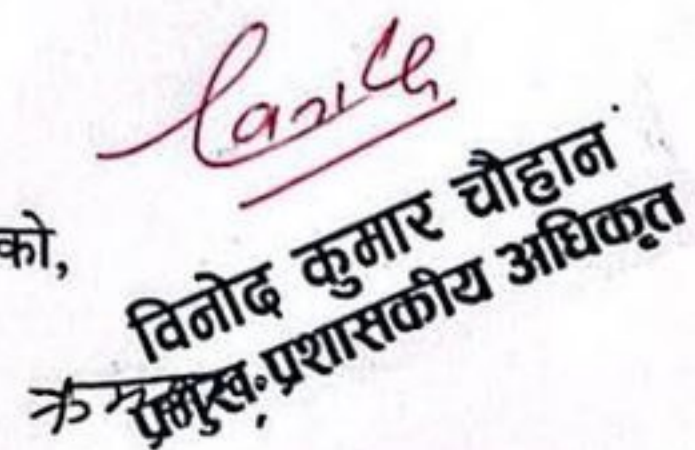 को,
विनोद कुमार चौहान
प्रमुख प्रशासकीय अधिकृत